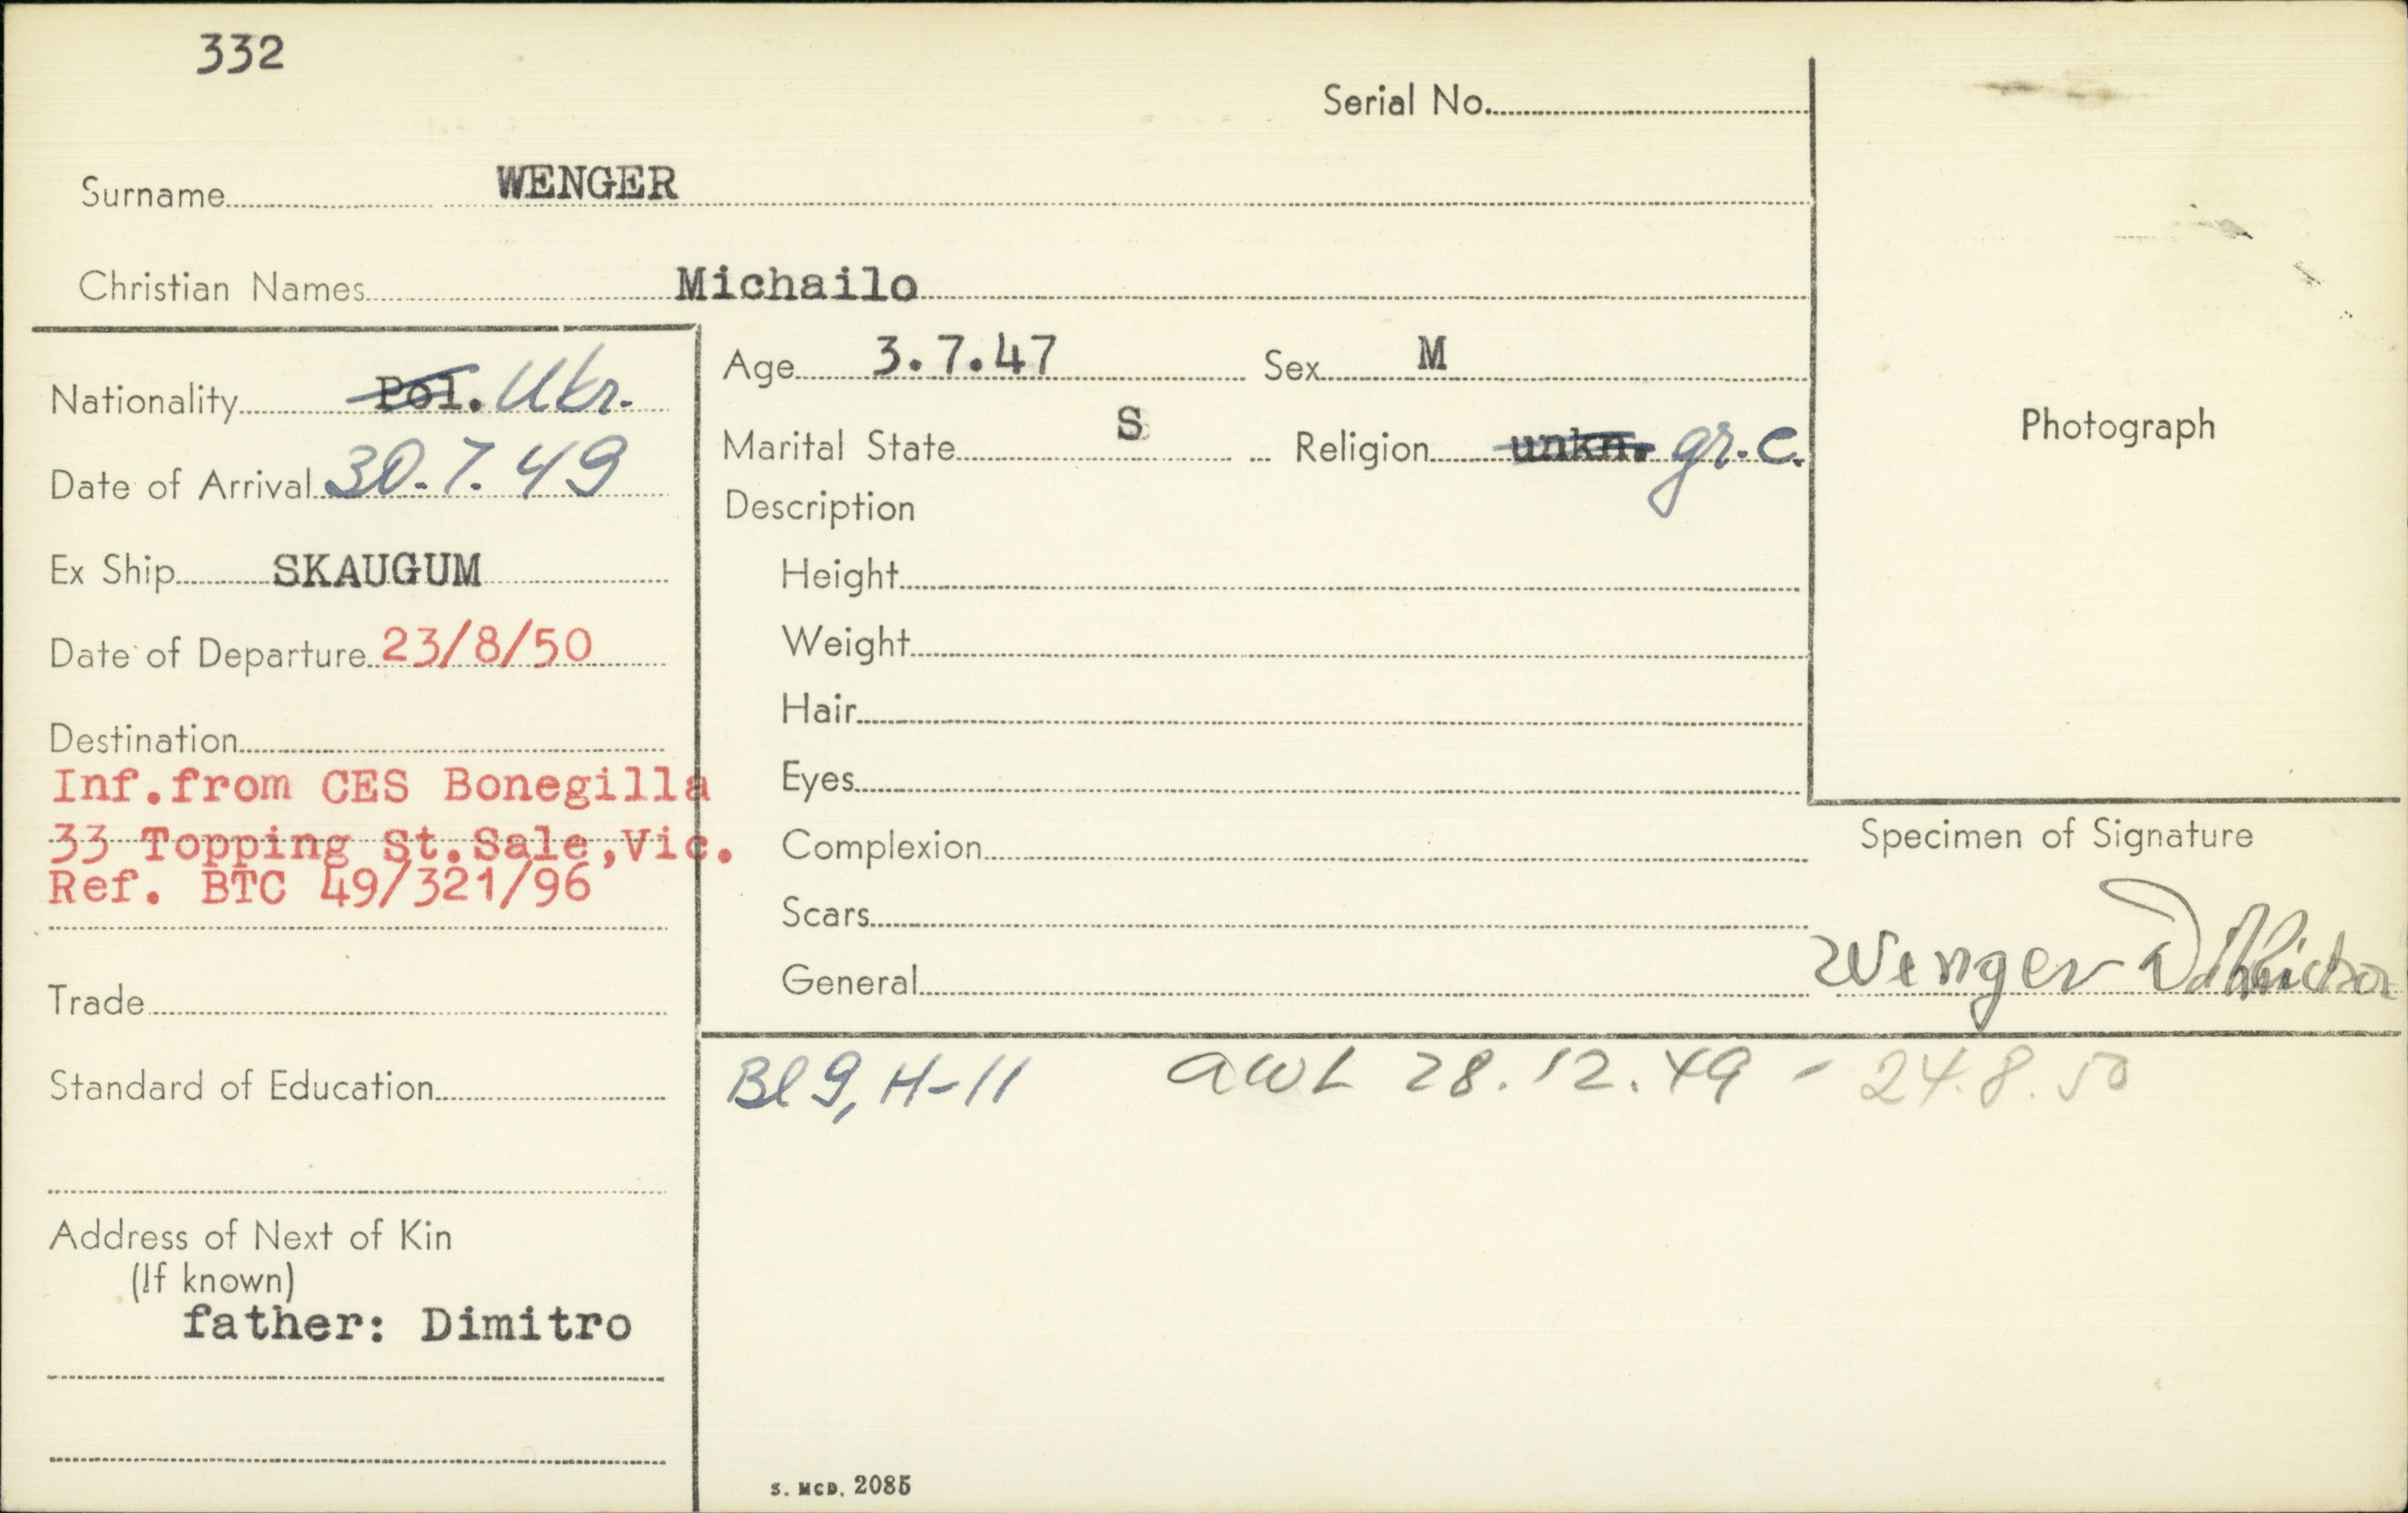 332
Serial No.
Surname WENGER
Christian Names Michailo
Nationality Pol. Ukr.
Date of Arrival 30.7.49
Ex Ship SKAUGUM
Date of Departure 23/8/50
Destination
Inf.from CES Bonegilla
33 Topping St.Sale,Vic.
Ref. BTC 49/321/96
Trade
Standard of Education
Address of Next of Kin
(If known)
father: Dimitro
Age 3.7.47 Sex M
Marital State S Religion unkn. gr.c.
Description
Height
Weight
Hair
Eyes
Complexion
Scars
General
Photograph
Specimen of Signature
Wenger
Bl 9, H-11 AWL 28.12.49 - 24.8.50
S. MCD. 2085